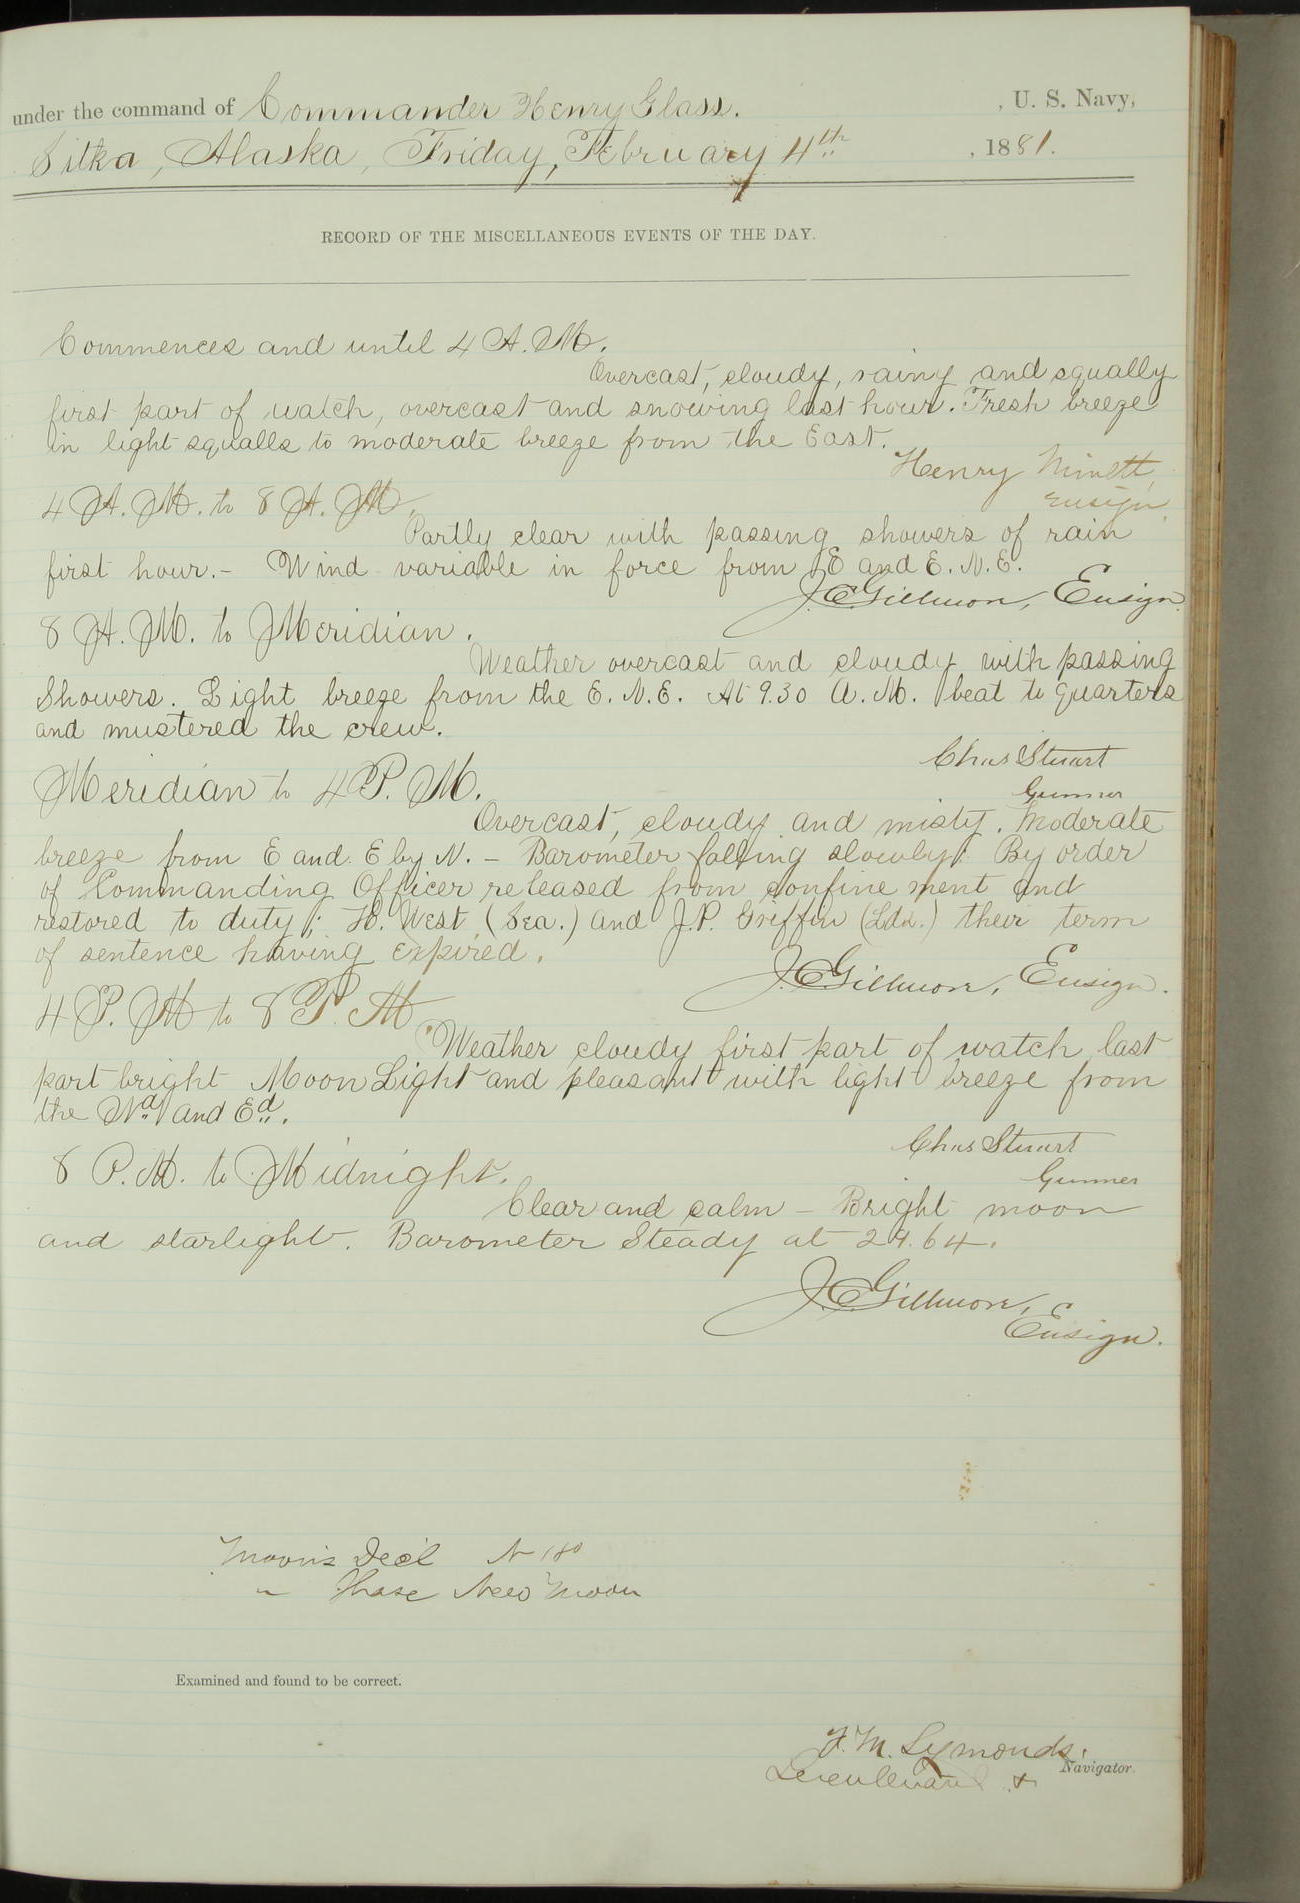 under the command of Commander Henry Glass. , U. S. Navy,
Sitka, Alaska, Friday, February 4th , 1881.
RECORD OF THE MISCELLANEOUS EVENTS OF THE DAY.
Commences and until 4 A. M.
Overcast, cloudy, rainy and squally
first part of watch, overcast and snowing last hour. Fresh breeze
in light squalls to moderate breeze from the East.
Henry Minett,
Ensign.
4 A. M. to 8 A. M.
Partly clear with passing showers of rain
first hour.- Wind variable in force from E and E. N. E.
J. C. Gillmore, Ensign.
8 A. M. to Meridian.
Weather overcast and cloudy with passing
Showers. Light breeze from the E. N. E. At 9.30 A. M. beat to quarters
and mustered the crew.
Chas Stuart
Gunner
Meridian to 4 P. M.
Overcast, cloudy and misty. Moderate
breeze from E and E by N. - Barometer falling slowly. By order
of Commanding Officer released from confinement and
restored to duty; H. West (Sea.) and J. P. Griffin (Lds.) their term
of sentence having expired.
J. C. Gillmore, Ensign.
4 P. M to 8 P. M
Weather cloudy first part of watch last
part bright Moon Light and pleasant with light breeze from
the Nd. and Ed.
Chas Stuart
Gunner
8 P. M. to Midnight.
Clear and calm - Bright moon
and starlight. Barometer Steady at 29.64.
J. C. Gillmore,
Ensign.
Moon's Decl N 18°
" Phase New Moon
Examined and found to be correct.
F. M. Symonds,
Lieutenant & Navigator.